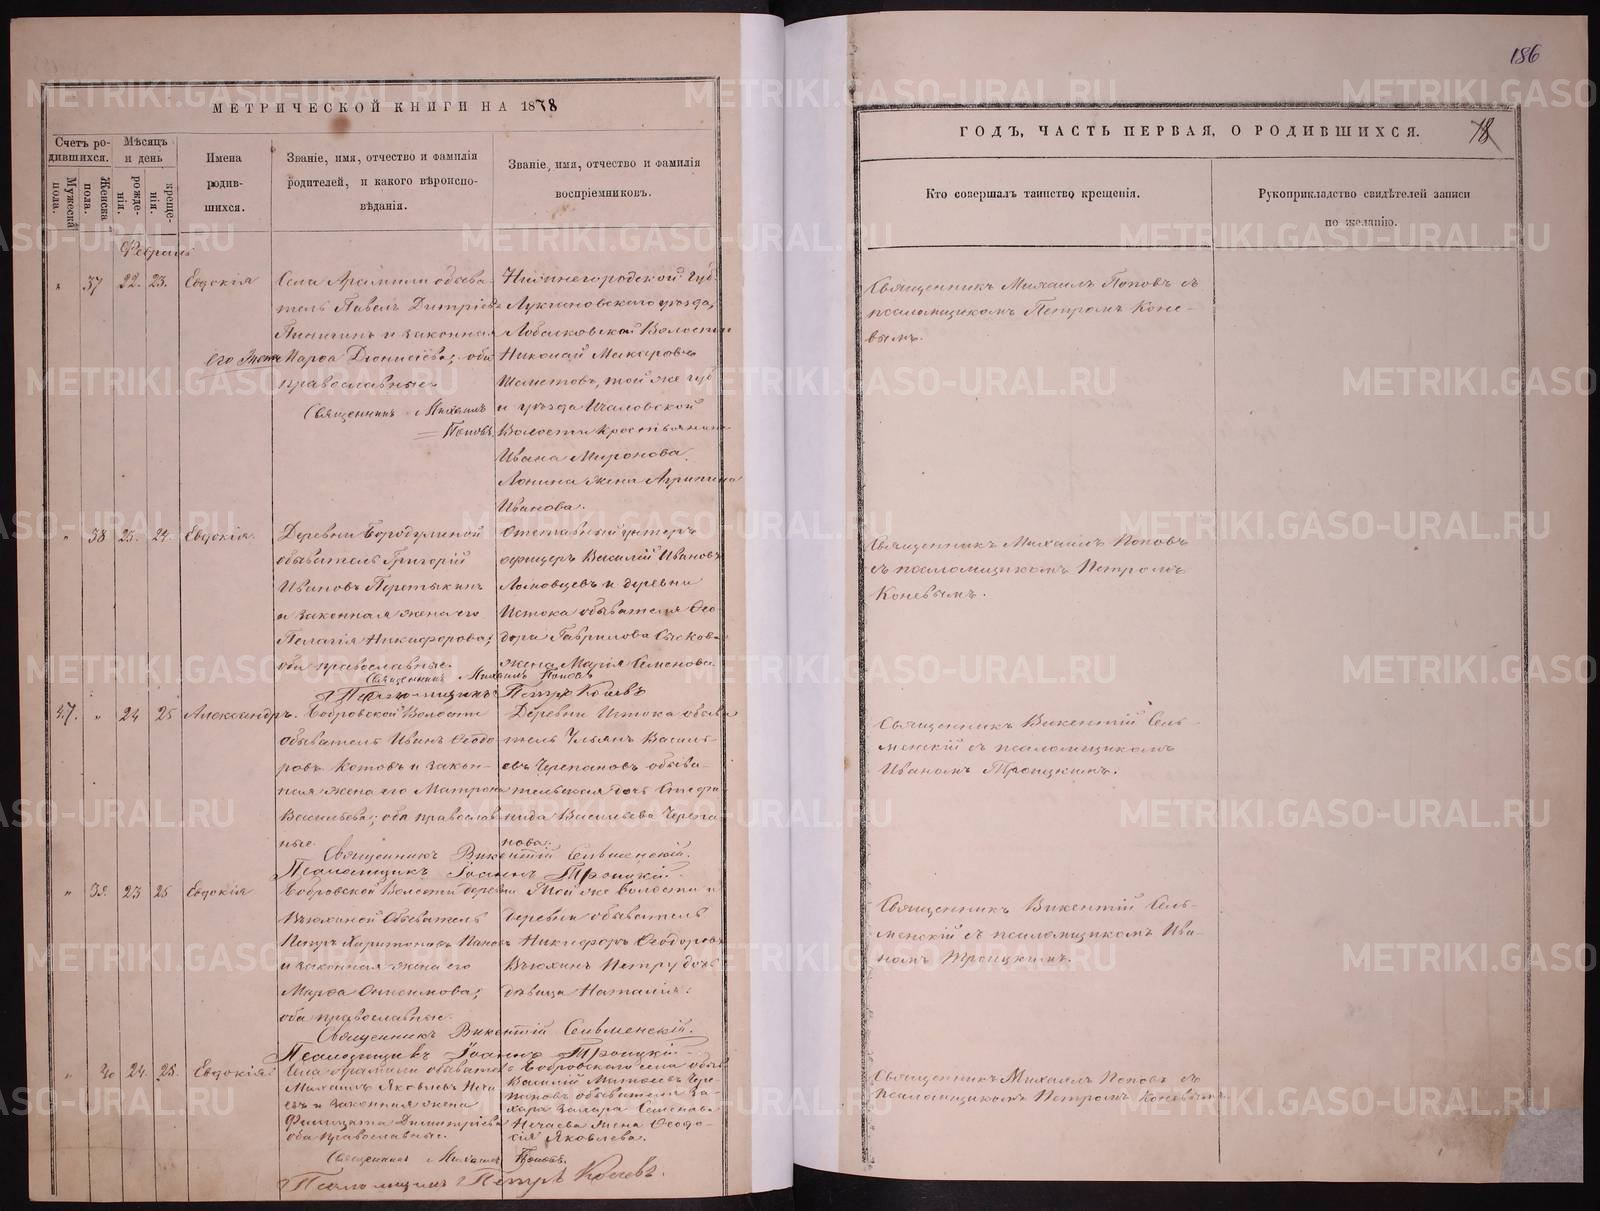 186
МЕТРИЧЕСКОЙ КНИГИ НА 1878
Счетъ ро-
дившихся.
Мѣсяцъ
и день
Мужеска
пола.
Женска
пола.
рожде-
нія.
креще-
нія.
Имена
родив-
шихся.
Званіе, имя, отчество и фамилія
родителей, и какого вѣроиспо-
вѣданія.
Званіе, имя, отчество и фамилія
воспріемниковъ.
Февраль
37 22. 23. Евдокія
Села Арамили обыва-
тель Павелъ Дитріевъ
и законная
его жена Марѳа Діонисіева; оба
православные
Священникъ Михаилъ
Поповъ
Нижнегородской губ.
Лукіановскаго уѣзда,
Лобасковской Волости
Николай Макаровъ
той же губ.
и уѣзда Ичаловской
Волости крестьянина
Ивана Миронова
жена Агрипина
Иванова.
" 38 23. 24. Евдокія
Деревни Бородулиной
обыватель Григорій
Ивановъ
и законная жена его
Пелагія Никифорова;
оба православные.
Священникъ Михаилъ Поповъ
Псаломщикъ Петръ Коневъ
Отставный унтеръ
офицеръ Василій Ивановъ
и деревни
Истока обывателя Ѳео-
дора Гаврилова
жена Марія Семенова.
47. " 24 25 Александръ.
Бобровской Волости
обыватель Иванъ Ѳеодо-
ровъ Котовъ и закон-
ная жена его Матрона
Васильева; оба православ-
ные.
Священникъ Викентій Сельменскій.
Псаломщикъ Іоаннъ Троицкій.
Деревни Истока обыва-
тель Ульянъ Василь-
евъ Черепановъ обыва-
тельская дочь Стефа-
нида Васильева Черепа-
нова.
" 39. 23 25 Евдокія
Бобровской Волости дерев-
ни Вьюхиной Обыватель
Петръ Харитоновъ Пановъ
и законная жена его
Марѳа Онисимова;
оба православные.
Священникъ Викентій Сельменскій.
Псаломщикъ Іоаннъ Троицкій
Той же волости и
деревни обыватель
Никифоръ Ѳеодоровъ
Вьюхинъ
дѣвица Наталія.
" 40 24. 25. Евдокія
Села Арамили обыватель
Михаилъ Яковлевъ Неча-
евъ и законная жена
Димитріева
оба православные.
Священникъ Михаилъ Поповъ.
Псаломщикъ Петръ Коневъ.
Бобровскаго села обыв.
Василій Матвѣевъ Чере-
пановъ обывателя За-
хара Захара Семенова
Нечаева жена Ѳеодо-
сія Яковлева.
ГОДЪ, ЧАСТЬ ПЕРВАЯ, О РОДИВШИХСЯ.
78
Кто совершалъ таинство крещенія.
Рукоприкладство свидѣтелей записи
по желанію.
Священникъ Михаилъ Поповъ съ
псаломщикомъ Петромъ Коне-
вымъ.
Священникъ Михаилъ Поповъ
съ псаломщикомъ Петромъ
Коневымъ.
Священникъ Викентій Сель-
менскій съ псаломщикомъ
Иваномъ Троицкимъ.
Священникъ Викентій Сель-
менскій съ псаломщикомъ Ива-
номъ Троицкимъ.
Священникъ Михаилъ Поповъ съ
псаломщикомъ Петромъ Коневымъ
METRIKI.GASO-URAL.RU